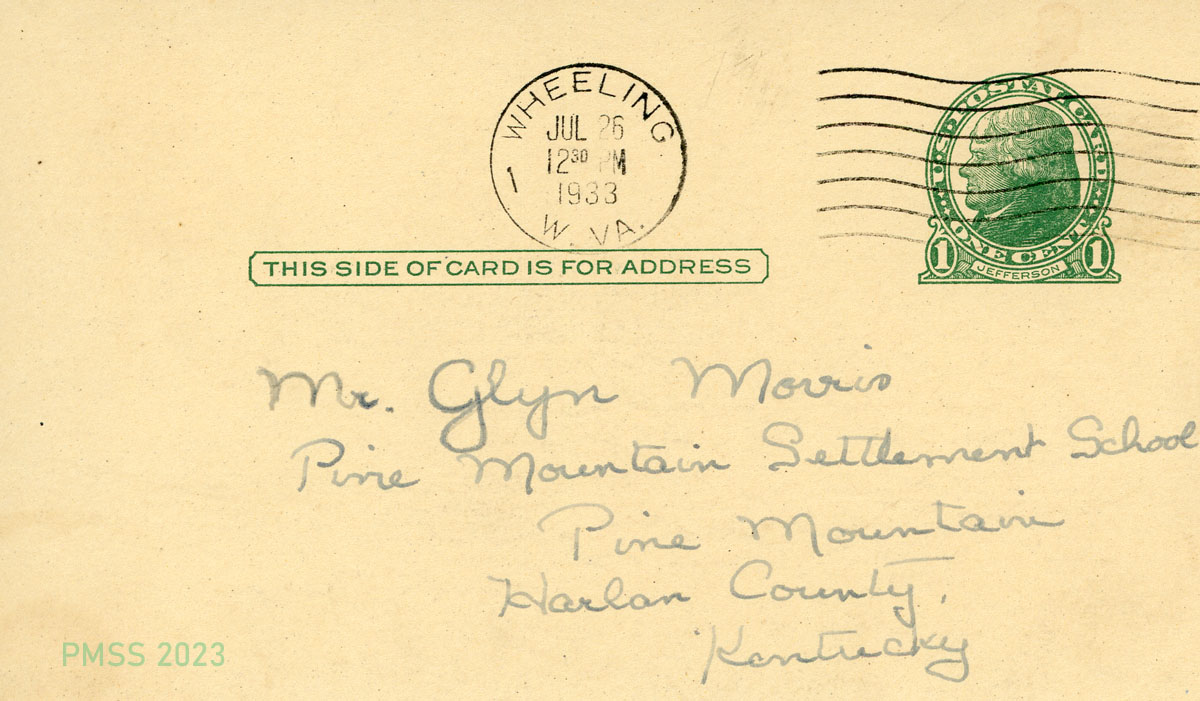 WHEELING
JUL 26
12 30 PM
1
1933
W. VA.
U.S. POSTAL CARD
ONE CENT
1 JEFFERSON 1
THIS SIDE OF CARD IS FOR ADDRESS
Mr. Glyn Morris
Pine Mountain Settlement School
Pine Mountain
Harlan County,
Kentucky
PMSS 2023